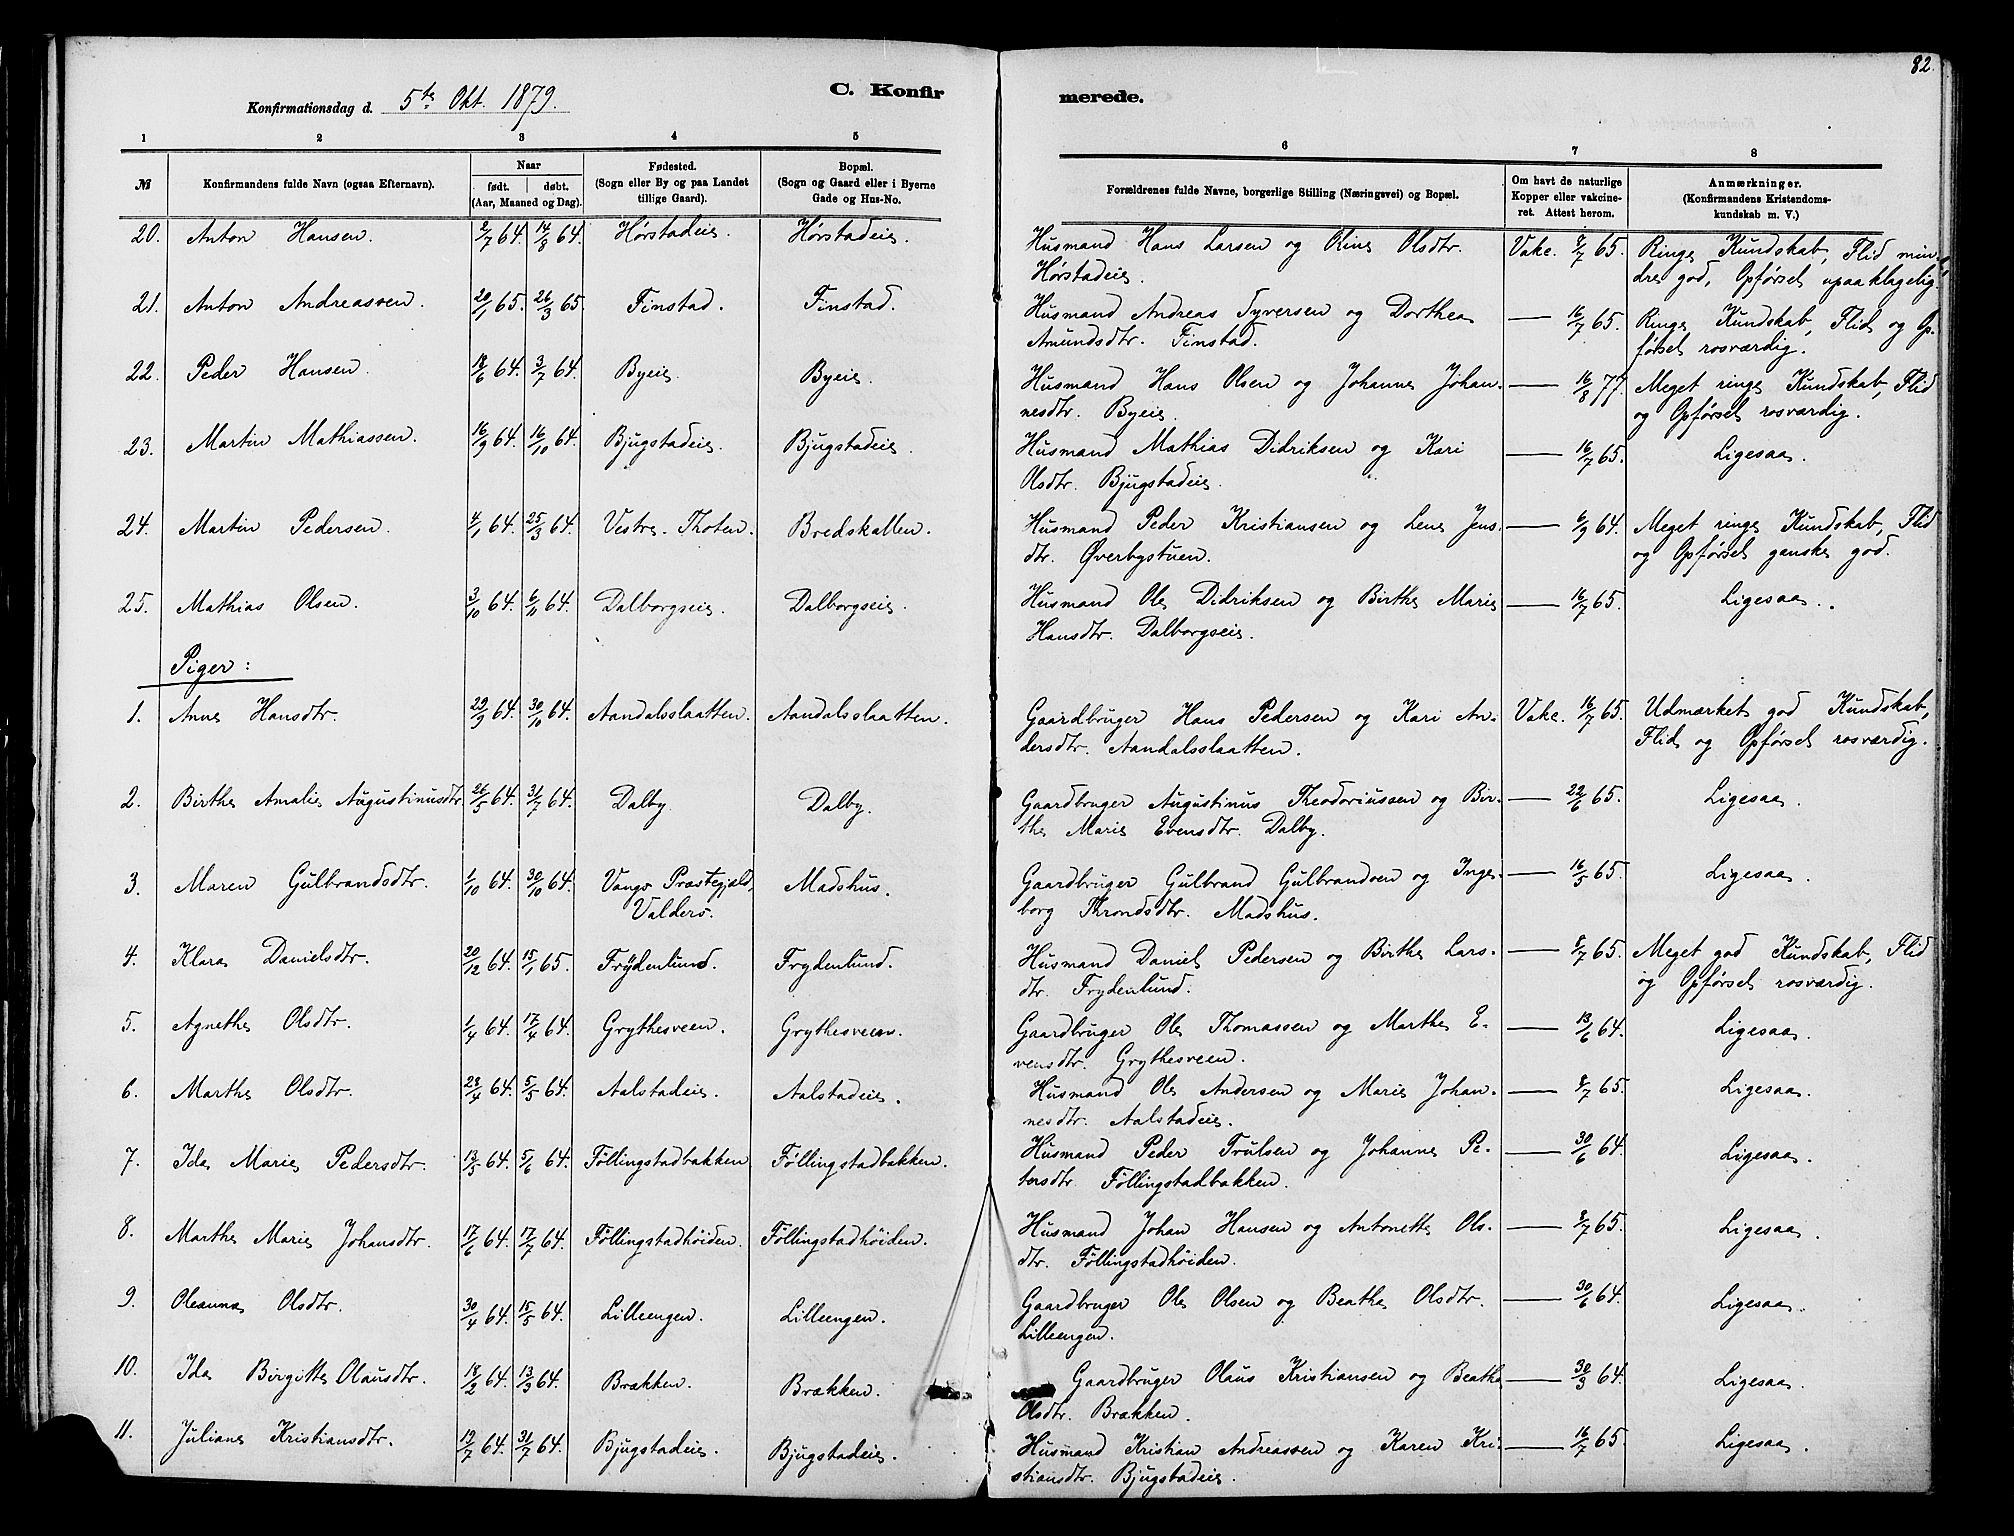 82.
Konfirmationsdag d. 5te Okt. 1879.
C. Konfirmerede.
1 2 3 4 5 6 7 8
№ Konfirmandens fulde Navn (ogsaa Efternavn). Naar født. døbt. (Aar, Maaned og Dag). Fødested. (Sogn eller By og paa Landet tillige Gaard). Bopæl. (Sogn og Gaard eller i Byerne Gade og Hus-No. Forældrenes fulde Navne, borgerlige Stilling (Næringsvei) og Bopæl. Om havt de naturlige Kopper eller vakcineret. Attest herom. Anmærkninger. (Konfirmandens Kristendomskundskab m. V.)
20. Anton Hansen. 2/7 64. 14/8 64. Hørstadeie. Hørstadeie. Husmand Hans Larsen og Oline Olsdtr. Vakc. 9/7 65. Ringe Kundskab, Flid min-
Hørstadeie. dre god, Opførsel upaaklagelig.
21. Anton Andreassen. 20/1 65. 26/3 65. Finstad. Finstad. Husmand Andreas Syversen og Dorthea — 16/7 65. Ringe Kundskab, Flid og Op-
Amundsdtr. Finstad. førsel rosværdig.
22. Peder Hansen. 12/6 64. 3/7 64. Byeie. Byeie. Husmand Hans Olsen og Johanne Johan- — 16/8 77. Meget ringe Kundskab, Flid
nesdtr. Byeie. og Opførsel rosværdig.
23. Martin Mathiassen. 16/9 64. 16/10 64. Bjugstadeie. Bjugstadeie. Husmand Mathias Didriksen og Kari — 16/7 65. Ligesaa.
Olsdtr. Bjugstadeie.
24. Martin Pedersen. 4/1 64. 25/3 64. Vestre Thoten. Bredskallen. Husmand Peder Kristiansen og Lene Jens- — 6/9 64. Meget ringe Kundskab, Flid
dtr. Øverbystuen. og Opførsel ganske god.
25. Mathias Olsen. 3/10 64. 6/11 64. Dalborgseie. Dalborgseie. Husmand Ole Didriksen og Birthe Marie — 16/7 65. Ligesaa.
Hansdtr. Dalborgseie.
Piger:
1. Anne Hansdtr. 29/9 64. 30/10 64. Aandalsslaatten. Aandalsslaatten. Gaardbruger Hans Pedersen og Kari An- Vakc. 16/7 65. Udmærket god Kundskab,
dersdtr. Aandalsslaatten. Flid og Opførsel rosværdig.
2. Birthe Amalie Augustinusdtr. 26/5 64. 31/7 64. Dalby. Dalby. Gaardbruger Augustinus Theodoriussen og Bir- — 22/6 65. Ligesaa.
the Marie Evensdtr. Dalby.
3. Maren Gulbrandsdtr. 1/10 64. 30/10 64. Vangs Præstegjæld, Madshus. Gaardbruger Gulbrand Gulbrandsen og Inge- — 16/5 65. Ligesaa.
Valders. borg Throndsdtr. Madshus.
4. Klara Danielsdtr. 20/12 64. 15/1 65. Frydenlund. Frydenlund. Husmand Daniel Pedersen og Birthe Lars- — 8/7 65. Meget god Kundskab, Flid
dtr. Frydenlund. og Opførsel rosværdig.
5. Agnethe Olsdtr. 1/4 64. 17/4 64. Grythesveen. Grythesveen. Gaardbruger Ole Thomassen og Marthe E- — 13/6 64. Ligesaa.
vensdtr. Grythesveen.
6. Marthe Olsdtr. 23/4 64. 5/5 64. Aalstadeie. Aalstadeie. Husmand Ole Andersen og Marie Johan- — 8/7 65. Ligesaa.
nesdtr. Aalstadeie.
7. Ida Marie Pedersdtr. 13/5 64. 5/6 64. Föllingstadbakken Föllingstadbakken. Husmand Peder Trulsen og Johanne Pe- — 30/6 64. Ligesaa.
tersdtr. Föllingstadbakken.
8. Marthe Marie Johansdtr. 17/6 64. 17/7 64. Föllingstadhöiden. Föllingstadhöiden. Husmand Johan Hansen og Antonette Ols- — 8/7 65. Ligesaa.
dtr. Föllingstadhöiden.
9. Oleanna Olsdtr. 30/4 64. 15/5 64. Lilleengen. Lilleengen. Gaardbruger Ole Olsen og Beathe Olsdtr. — 30/6 64. Ligesaa.
Lilleengen.
10. Ida Birgitte Olausdtr. 18/2 64. 13/3 64. Brækken. Brækken. Gaardbruger Olaus Kristiansen og Beathe — 30/3 64. Ligesaa.
Olsdtr. Brækken.
11. Juliane Kristiansdtr. 12/7 64. 31/7 64. Bjugstadeie. Bjugstadeie. Husmand Kristian Andreassen og Karen Kri- — 16/7 65. Ligesaa.
stiansdtr. Bjugstadeie.